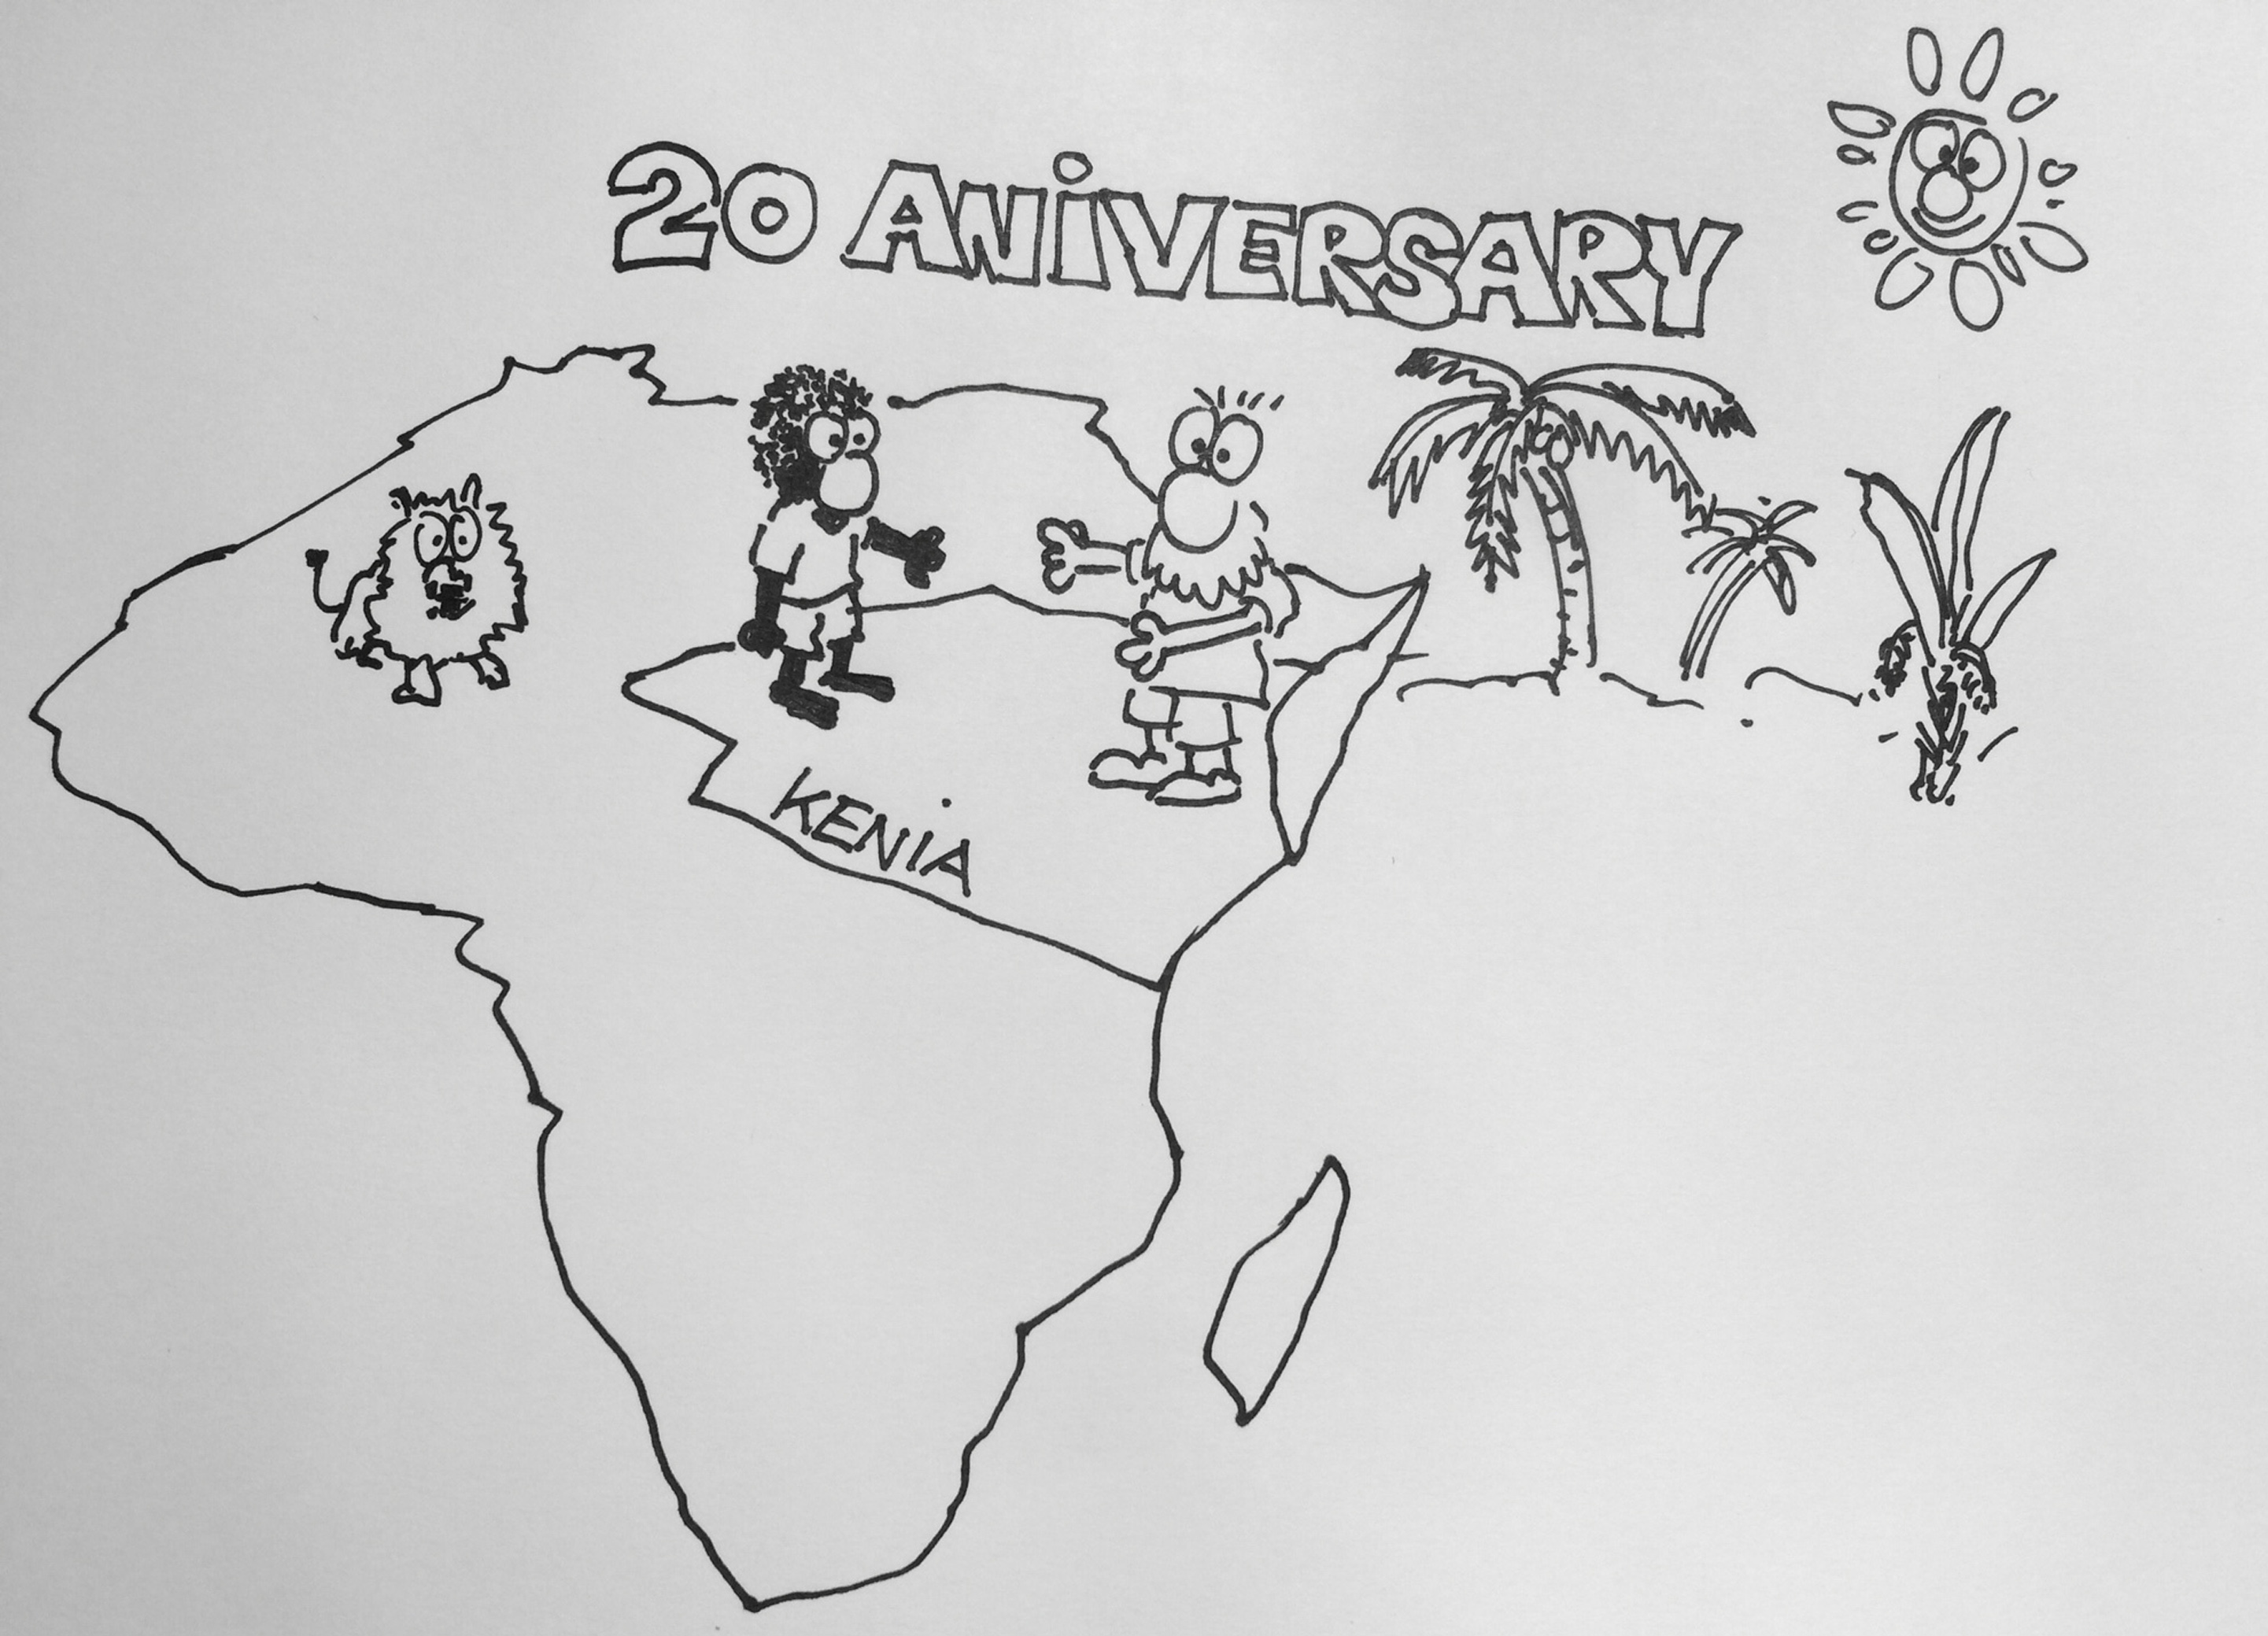 20 ANiVERSARY
KENiA